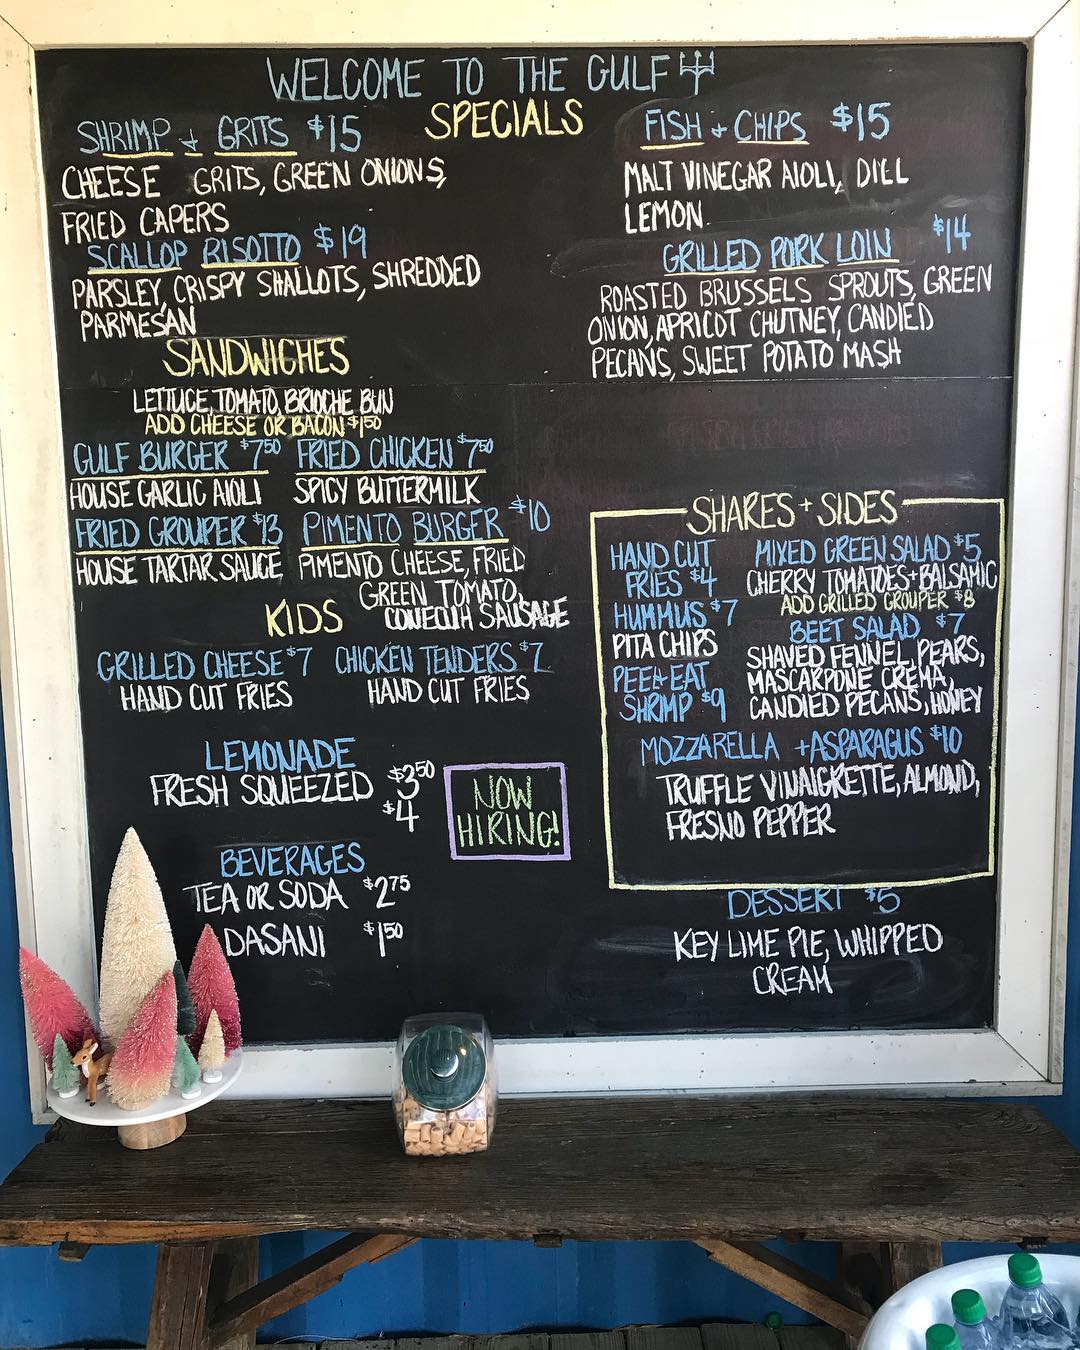 WELCOME TO THE GULF
SPECIALS
SHRIMP + GRITS $15
CHEESE GRITS, GREEN ONIONS,
FRIED CAPERS
SCALLOP RISOTTO $19
PARSLEY, CRISPY SHALLOTS, SHREDDED
PARMESAN
FISH + CHIPS $15
MALT VINEGAR AIOLI, DILL
LEMON
GRILLED PORK LOIN $14
ROASTED BRUSSELS SPROUTS, GREEN
ONION, APRICOT CHUTNEY, CANDIED
PECANS, SWEET POTATO MASH
SANDWICHES
LETTUCE, TOMATO, BRIOCHE BUN
ADD CHEESE OR BACON $1.50
GULF BURGER $7.50 FRIED CHICKEN $7.50
HOUSE GARLIC AIOLI SPICY BUTTERMILK
FRIED GROUPER $13 PIMENTO BURGER $10
HOUSE TARTAR SAUCE PIMENTO CHEESE, FRIED
GREEN TOMATO,
CONECUH SAUSAGE
KIDS
GRILLED CHEESE $7 CHICKEN TENDERS $7
HAND CUT FRIES HAND CUT FRIES
LEMONADE
FRESH SQUEEZED $3.50
$4
NOW
HIRING!
BEVERAGES
TEA OR SODA $2.75
DASANI $1.50
SHARES + SIDES
HAND CUT
FRIES $4
HUMMUS $7
PITA CHIPS
PEEL+EAT
SHRIMP $9
MIXED GREEN SALAD $5
CHERRY TOMATOES+BALSAMIC
ADD GRILLED GROUPER $8
BEET SALAD $7
SHAVED FENNEL, PEARS,
MASCARPONE CREMA,
CANDIED PECANS, HONEY
MOZZARELLA +ASPARAGUS $10
TRUFFLE VINAIGRETTE, ALMOND,
FRESNO PEPPER
DESSERT $5
KEY LIME PIE, WHIPPED
CREAM